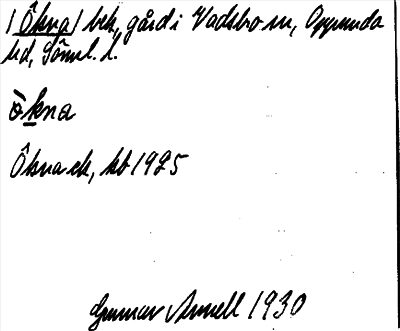 / Ökna / beb., gård i Vadsbro sn, Oppunda
hd, Söml. l.
ò̀kna
Ökna ek, kb 1925
Gunnar Arnell 1930